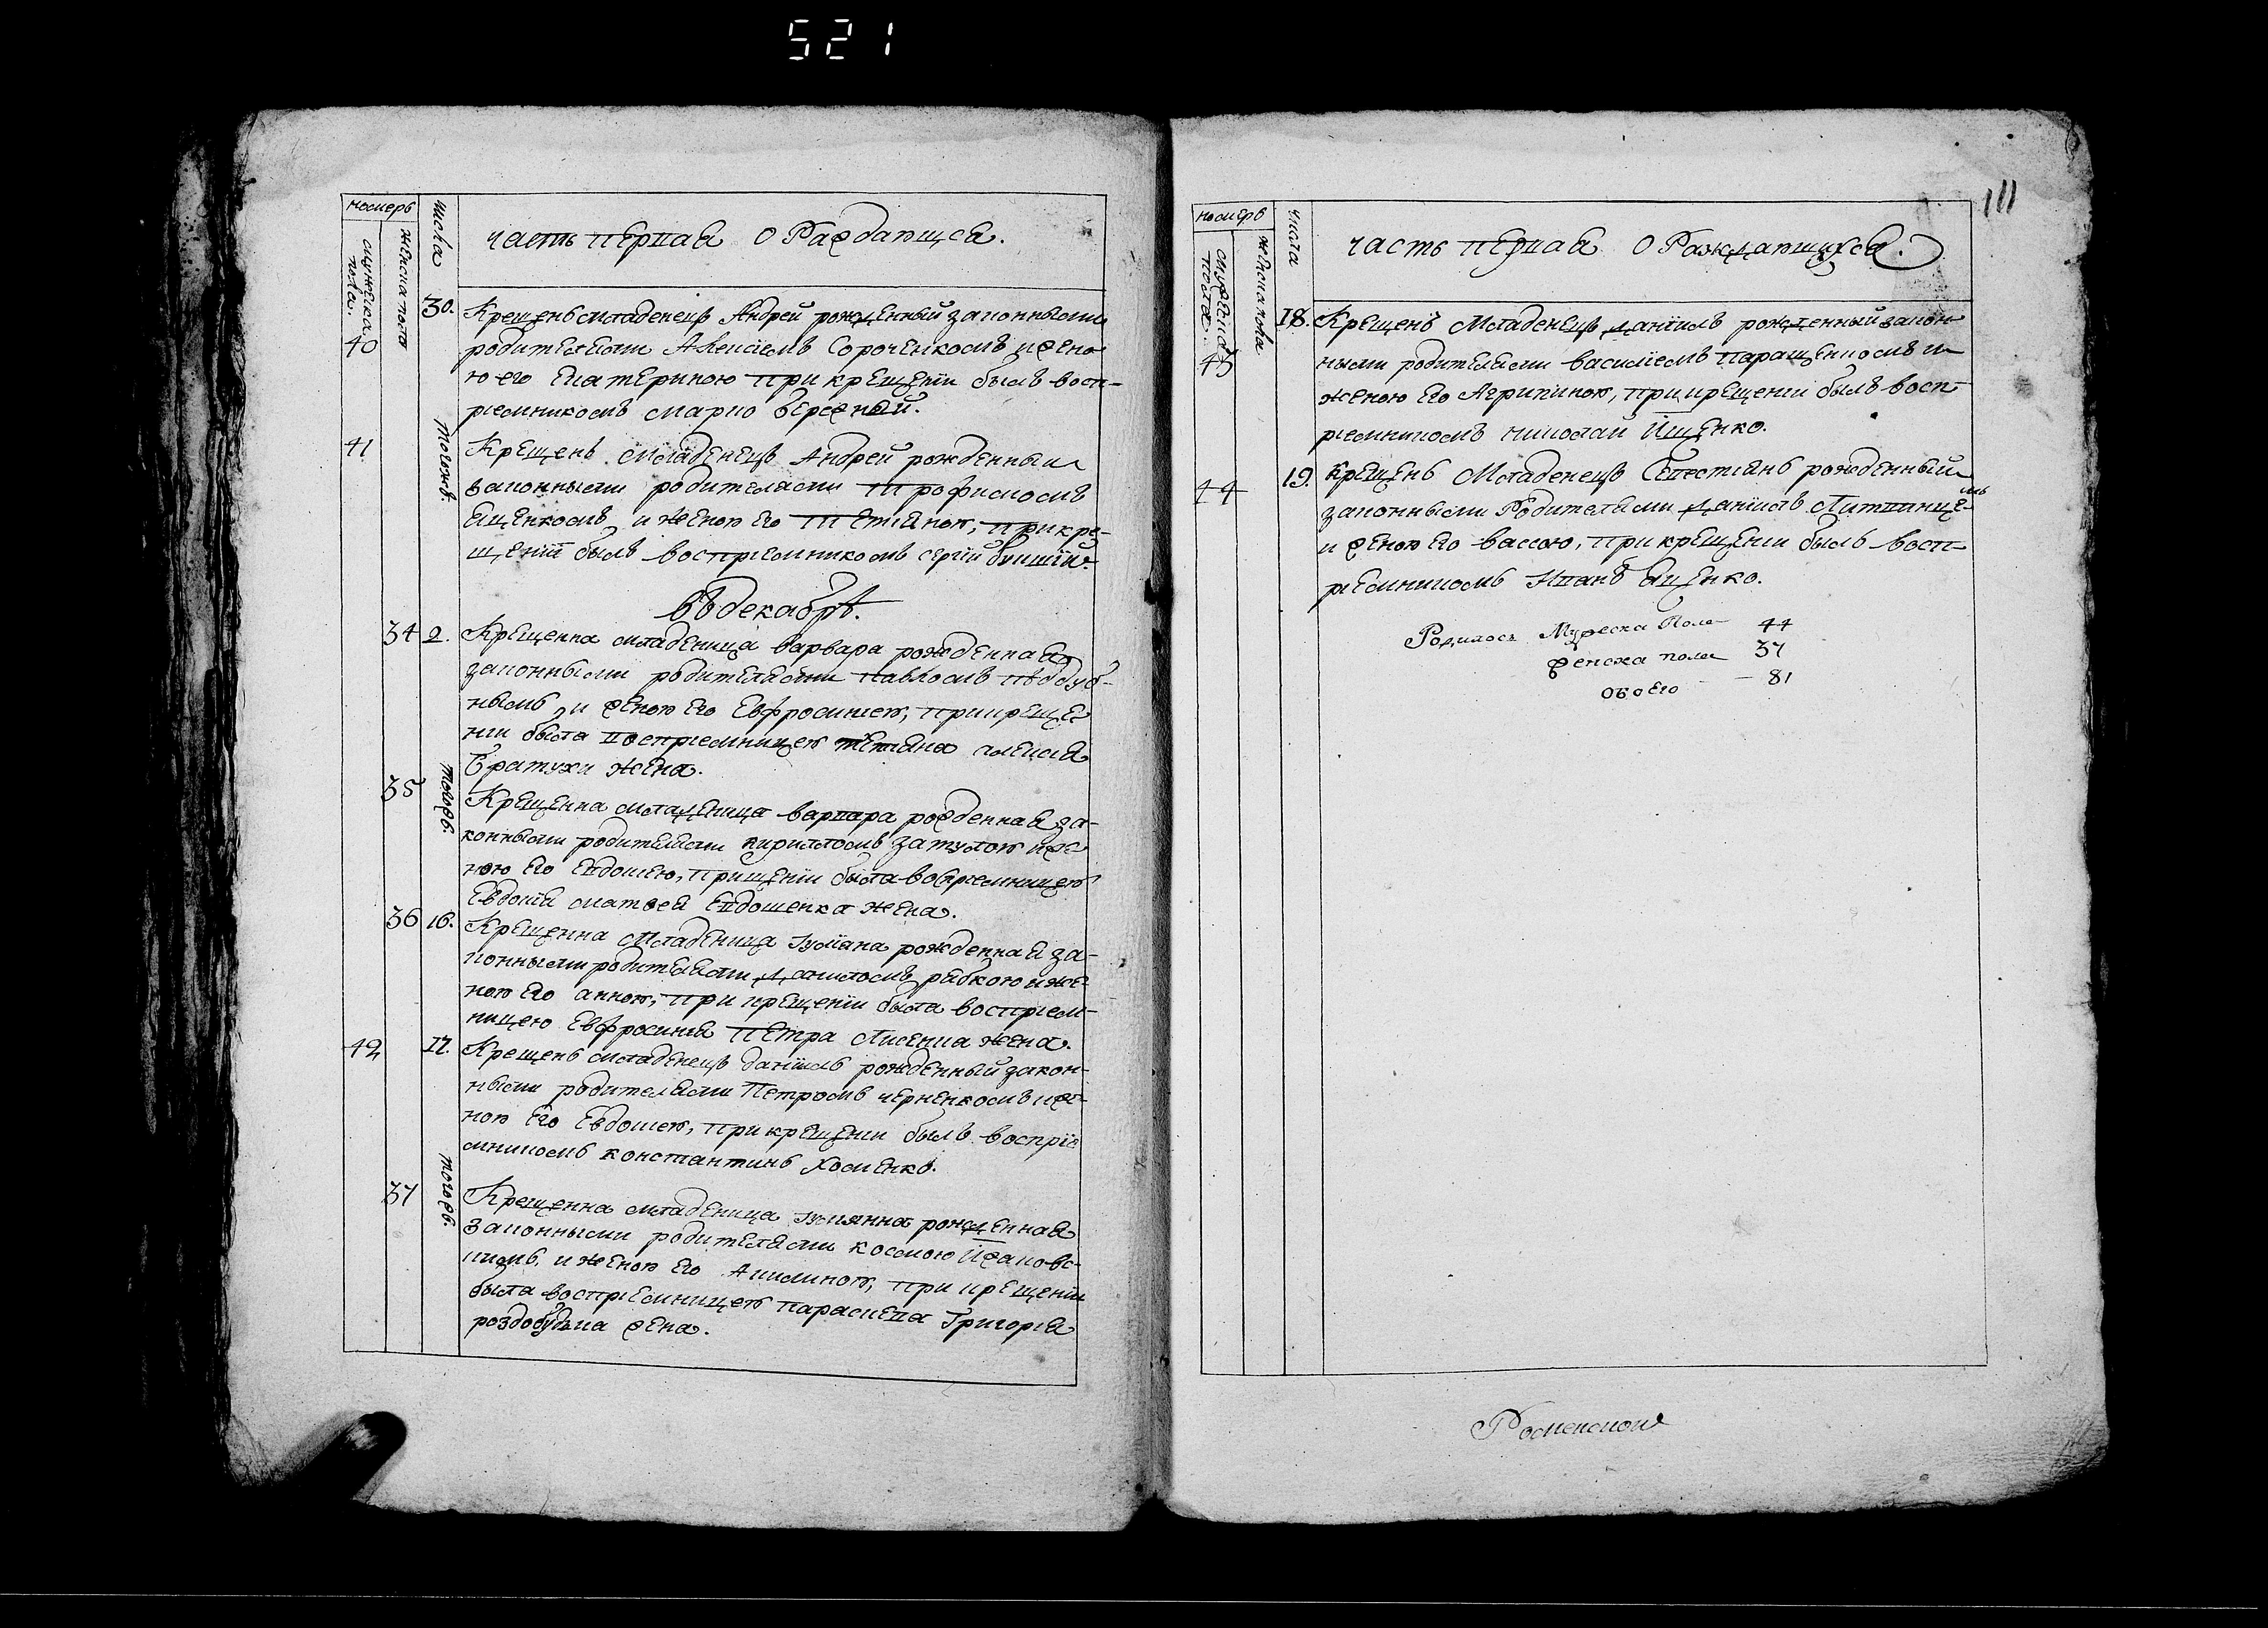 521
номеръ
мужеска пола.
женска пола
числа
часть первая о Раждающся.
40
30.
Крещенъ младенецъ Андрей рожденный законными
родителями Алексіемъ Сороченкомъ и жено
ю его Екатериною при крещеніи былъ восп-
ріемникомъ Марко Бережный.
41
тогожъ.
Крещенъ младенецъ Андрей рожденный
законными родителями Трофимомъ
Ященкомъ и женою его Тетяною, при кре-
щеніи былъ воспріемникомъ сергій
въ декабрѣ.
34
2.
Крещенна младеница варвара рожденная
законными родителями павломъ поддуб-
нымъ, и женою его Евфросиніею, при креще-
ніи была воспріемницею тетяна алексѣя
Братухи жена.
35
тогожъ.
Крещенна младеница варвара рожденная за-
конными родителями кирилломъ затулою и же
ною его евдокіею, при щеніи была воспріемницею
Евдокія матвея Евдошенка жена.
36
16.
Крещенна младеница Іуліана рожденная за-
конными родителями даниломъ рябкою и же-
ною его анною, при крещеніи была воспріем-
ницею Евфросинія Петра Лисенка жена.
42
17.
Крещенъ младенецъ даніилъ рожденный закон-
ными родителями Петромъ черненкомъ и же-
ною его Евдокіею, при крещеніи былъ воспріе
мникомъ константинъ Хоменко.
37
тогожъ.
Крещенна младеница Іулianна рожденная
законными родителями космою
и женою его Акилиною, при крещеніи
была воспріемницею параскева Григорія
роздобудька жена.
111
номеръ
мужеска пола.
женска пола
числа
часть первая о Раждающихся.
43
18.
Крещенъ Младенецъ даніилъ рожденный закон
ными родителями василіемъ паращенкомъ и
женою его Агрипиною, при крещеніи былъ восп-
ріемникомъ николай Ищенко.
44
19.
крещенъ Младенецъ Севестіянъ рожденный
законными Родителями даніилъ Литвинце-
мъ
и женою его вассою, при крещеніи былъ восп-
ріемникомъ Иванъ Ященко.
Родилось Мужеска Пола 44
женска пола 37
обоего — 81
Роменской